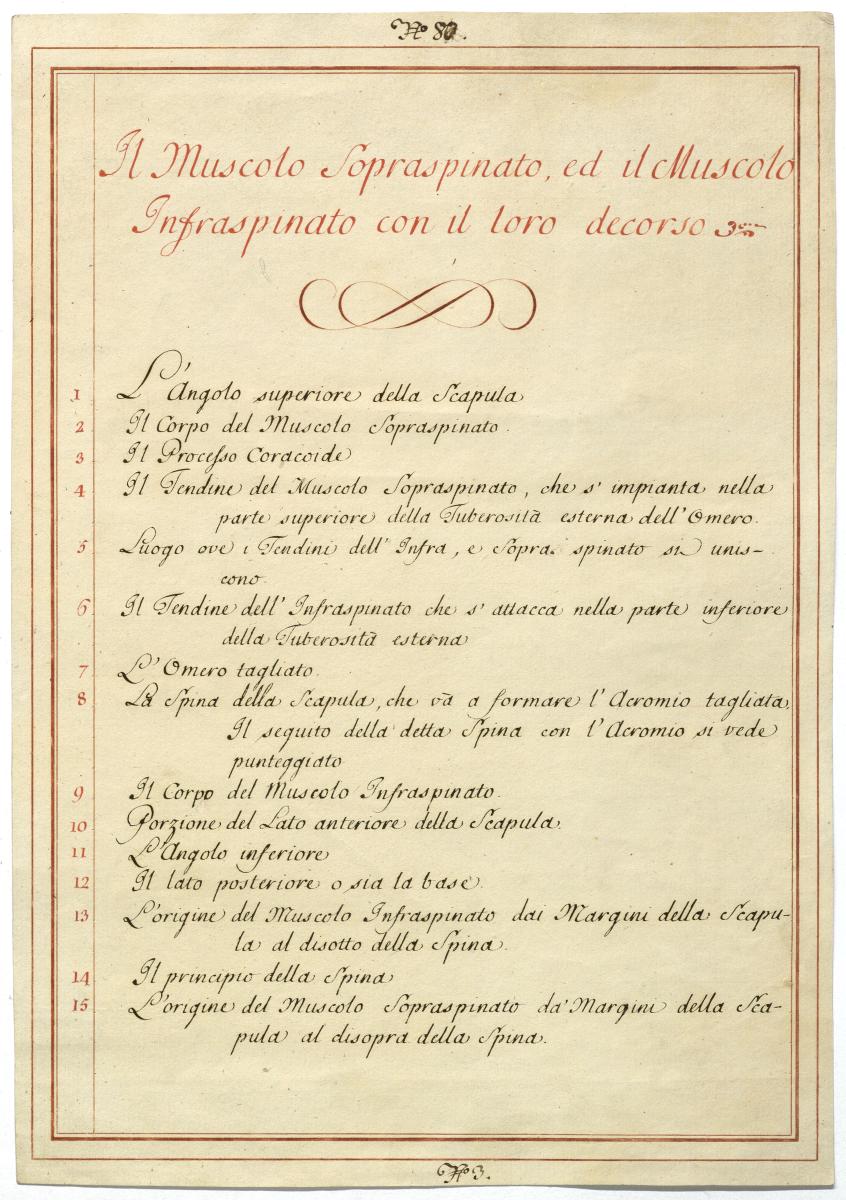 No 80.
Il Muscolo Sopraspinato, ed il Muscolo
Infraspinato con il loro decorso
1 L'Angolo superiore della Scapula
2 Il Corpo del Muscolo Sopraspinato.
3 Il Processo Coracoide
4 Il Tendine del Muscolo Sopraspinato, che s' impianta nella
parte superiore della Tuberosità esterna dell'Omero.
5 Luogo ove i Tendini dell'Infra, e Sopra spinato si unis-
cono.
6 Il Tendine dell'Infraspinato che s' attacca nella parte inferiore
della Tuberosità esterna
7 L'Omero tagliato.
8 La Spina della Scapula, che và a formare l'Acromio tagliata.
Il seguito della detta Spina con l'Acromio si vede
punteggiato
9 Il Corpo del Muscolo Infraspinato.
10 Porzione del Lato anteriore della Scapula.
11 L'Angolo inferiore
12 Il lato posteriore o sia la base.
13 L'origine del Muscolo Infraspinato dai Margini della Scapu-
la al disotto della Spina.
14 Il principio della Spina
15 L'origine del Muscolo Sopraspinato da' Margini della Sca-
pula al disopra della Spina.
No 3.